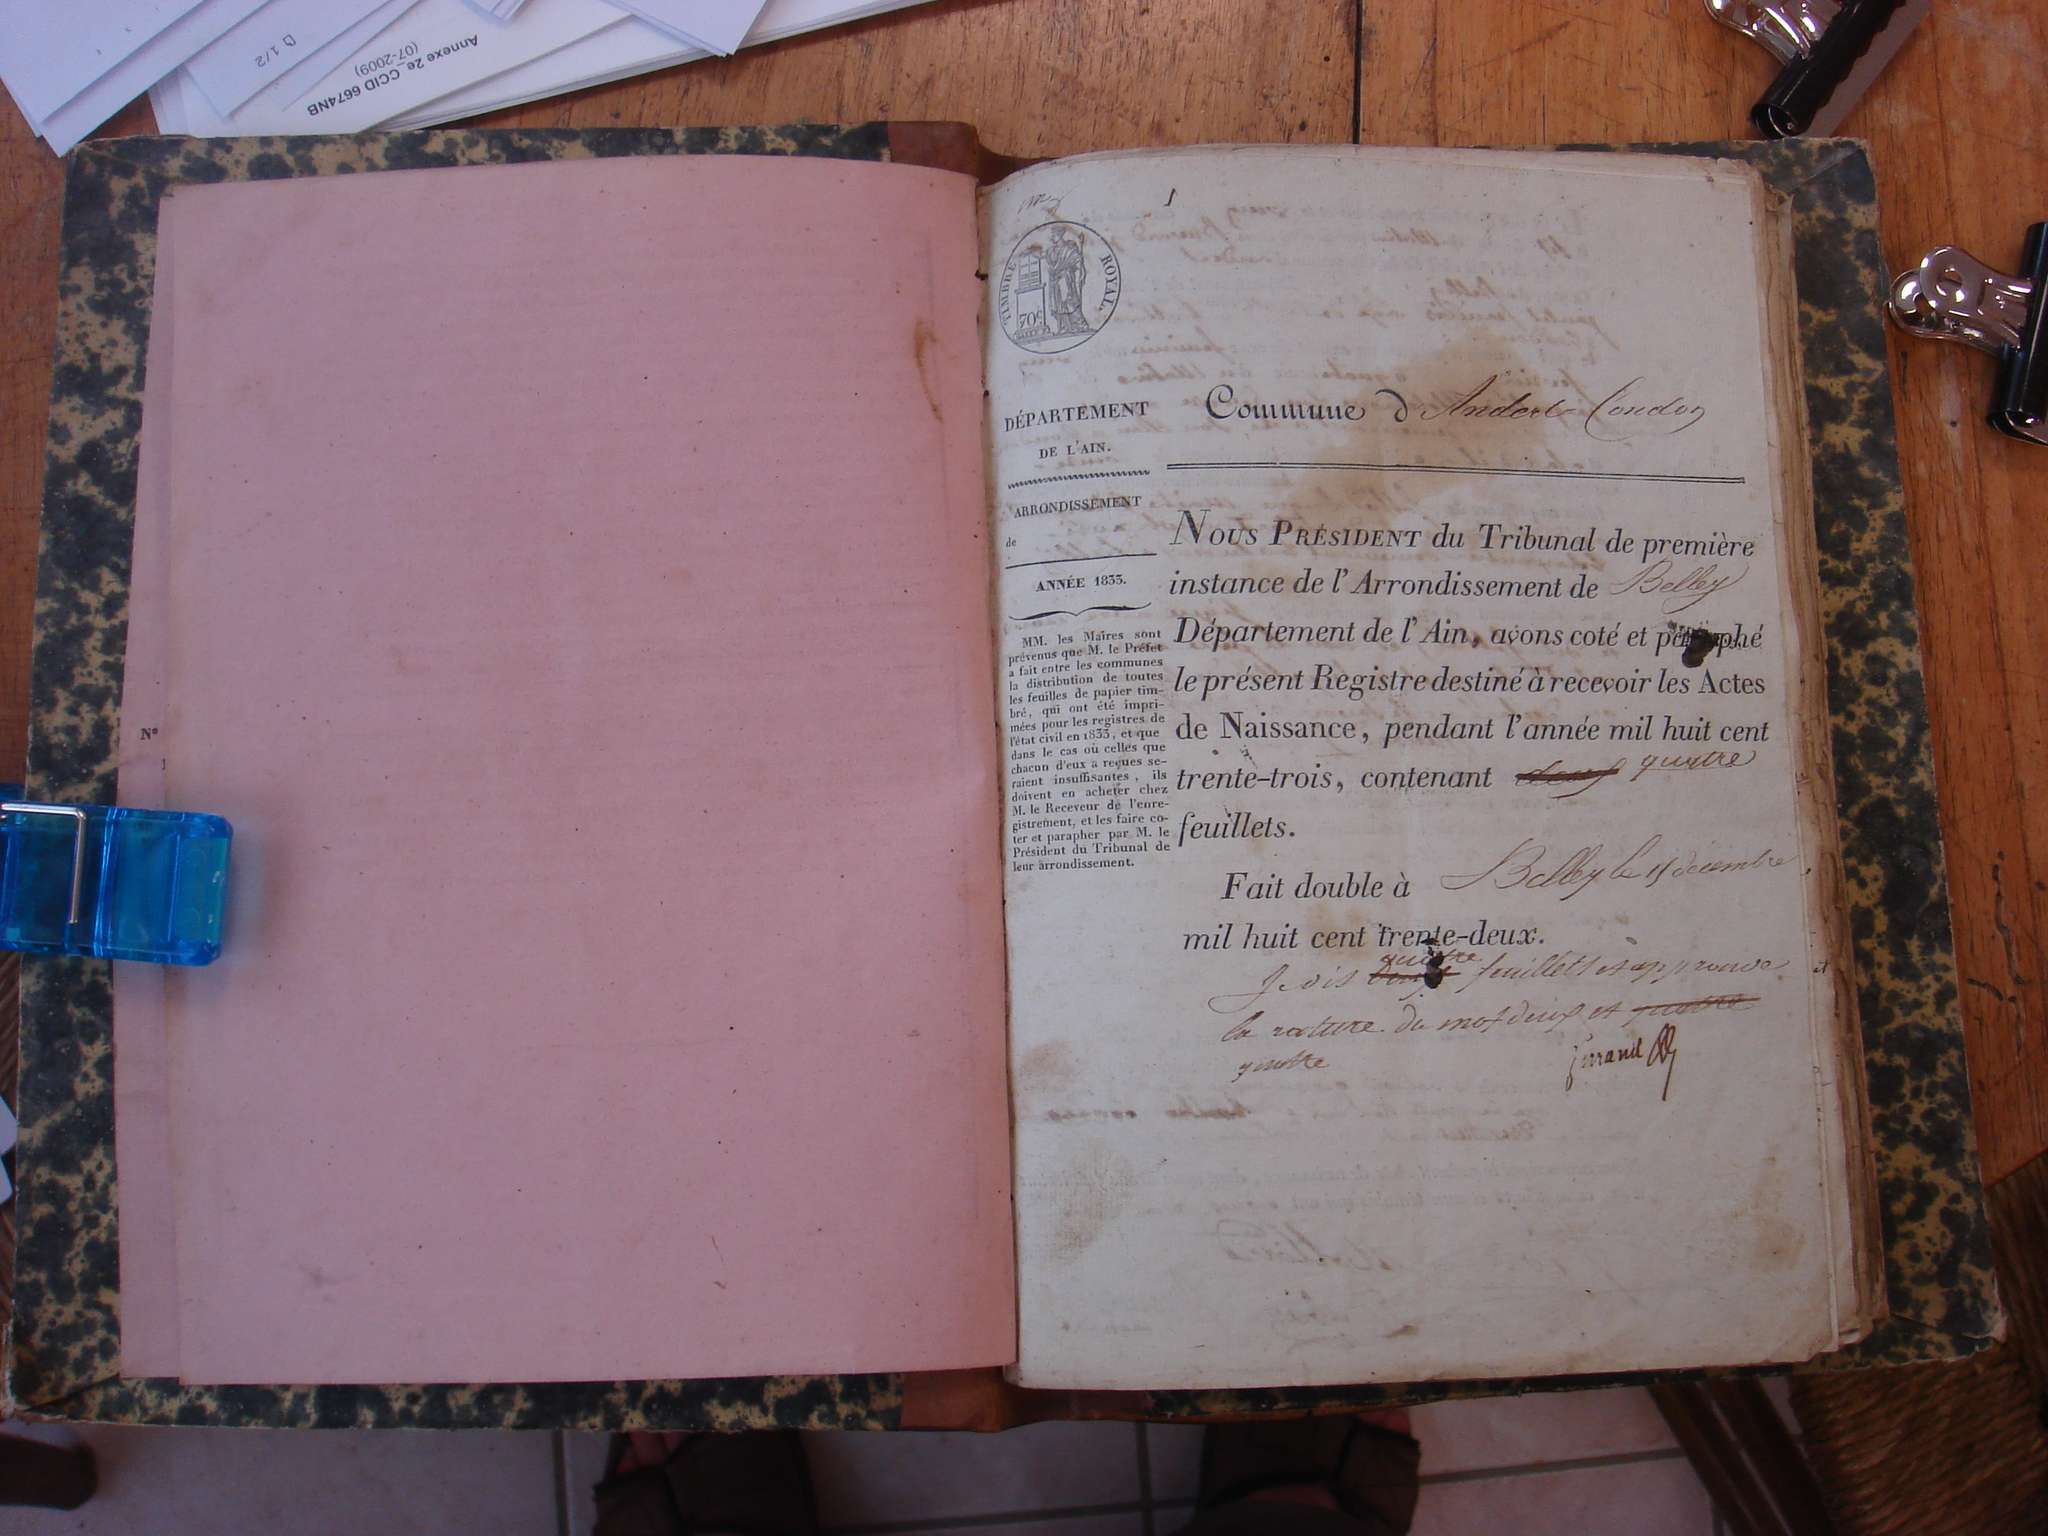 D 1/2
Annexe 2e_CCID 6674NB
(07-2009)
N°
1
1
TIMBRE ROYAL.
70c
DÉPARTEMENT
DE L'AIN.
ARRONDISSEMENT
de
ANNÉE 1833.
MM. les Maires sont
prévenus que M. le Préfet
a fait entre les communes
la distribution de toutes
les feuilles de papier tim-
bré, qui ont été impri-
mées pour les registres de
l'état civil en 1833, et que
dans le cas où celles que
chacun d'eux a reçues se-
raient insuffisantes, ils
doivent en acheter chez
M. le Receveur de l'enre-
gistrement, et les faire co-
ter et parapher par M. le
Président du Tribunal de
leur arrondissement.
Commune d'Andert Condon
NOUS PRÉSIDENT du Tribunal de première
instance de l'Arrondissement de Belley
Département de l'Ain, avons coté et paraphé
le présent Registre destiné à recevoir les Actes
de Naissance, pendant l'année mil huit cent
trente-trois, contenant deux quatre
feuillets.
Fait double à Belley le 15 décembre
mil huit cent trente-deux.
quatre
Je dis deux feuillets et approuve
la rature du mot deux et quatre
quatre